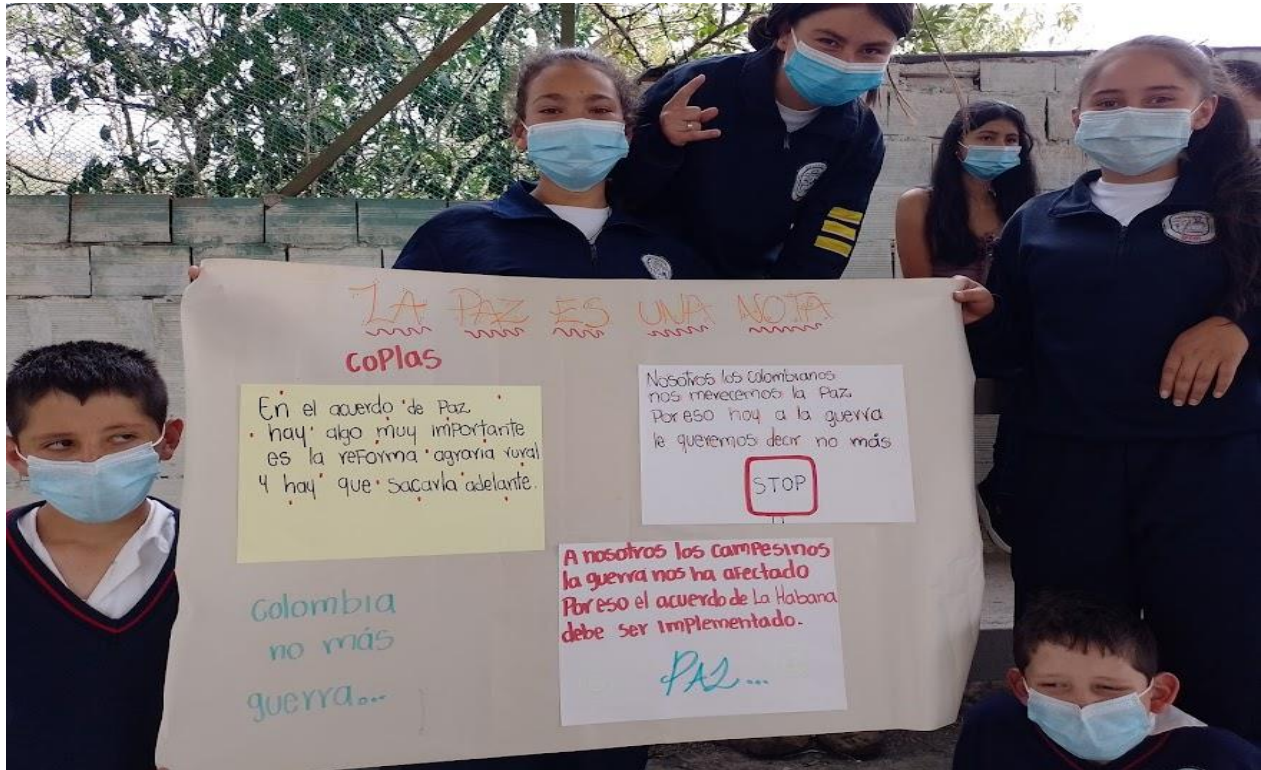 LA PAZ ES UNA NOTA
COPlas
En el acuerdo de Paz
hay algo muy importante
es la reforma agraria rural
y hay que sacarla adelante.
Nosotros los Colombianos
nos merecemos la Paz
Por eso hoy a la guerra
le queremos decir no más
STOP
A nosotros los campesinos
la guerra nos ha afectado
Por eso el acuerdo de La Habana
debe ser implementado.
PAZ...
Colombia
no más
guerra...